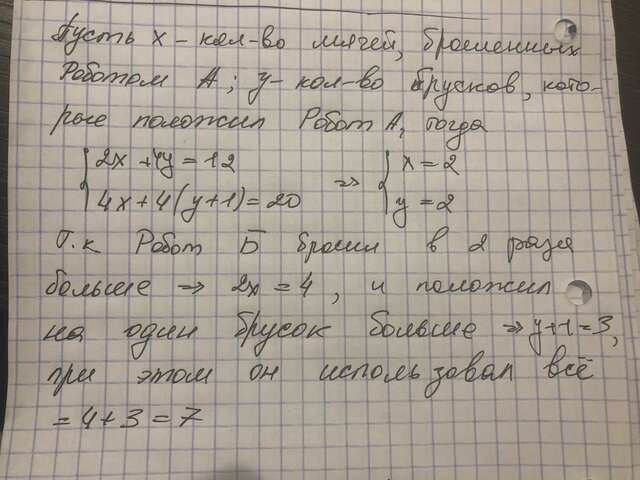 Пусть x - кол-во мячей, брошенных
Роботом А; y - кол-во брусков, кото-
рые положил Робот А, тогда
{2x + 4y = 12 => {x = 2
{4x + 4(y+1) = 20 {y = 2
Т.к Робот Б бросил в 2 раза
больше => 2x = 4, и положил
на один брусок больше => y+1=3,
при этом он использовал всё
= 4+3 = 7